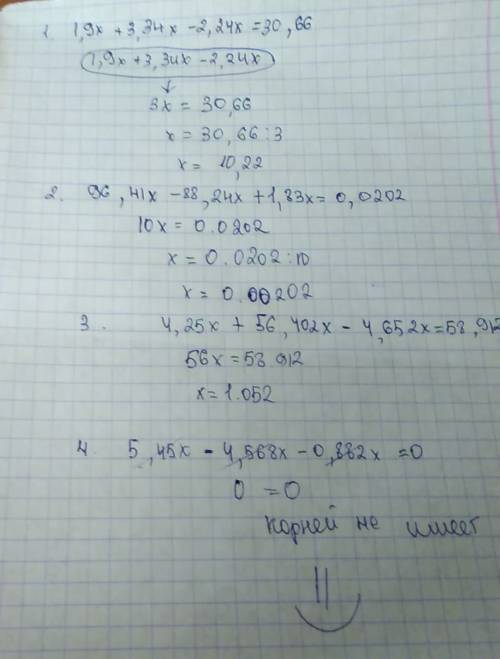 1. 1,9x + 3,34x - 2,24x = 30,66
1,9x + 3,34x - 2,24x
↓
3x = 30,66
x = 30,66 : 3
x = 10,22
2. 96,41x - 88,24x + 1,83x = 0,0202
10x = 0.0202
x = 0.0202 : 10
x = 0.00202
3. 4,25x + 56,402x - 4,652x = 58,912
56x = 58.912
x = 1.052
4. 5,45x - 4,568x - 0,882x = 0
0 = 0
Корней не имеет